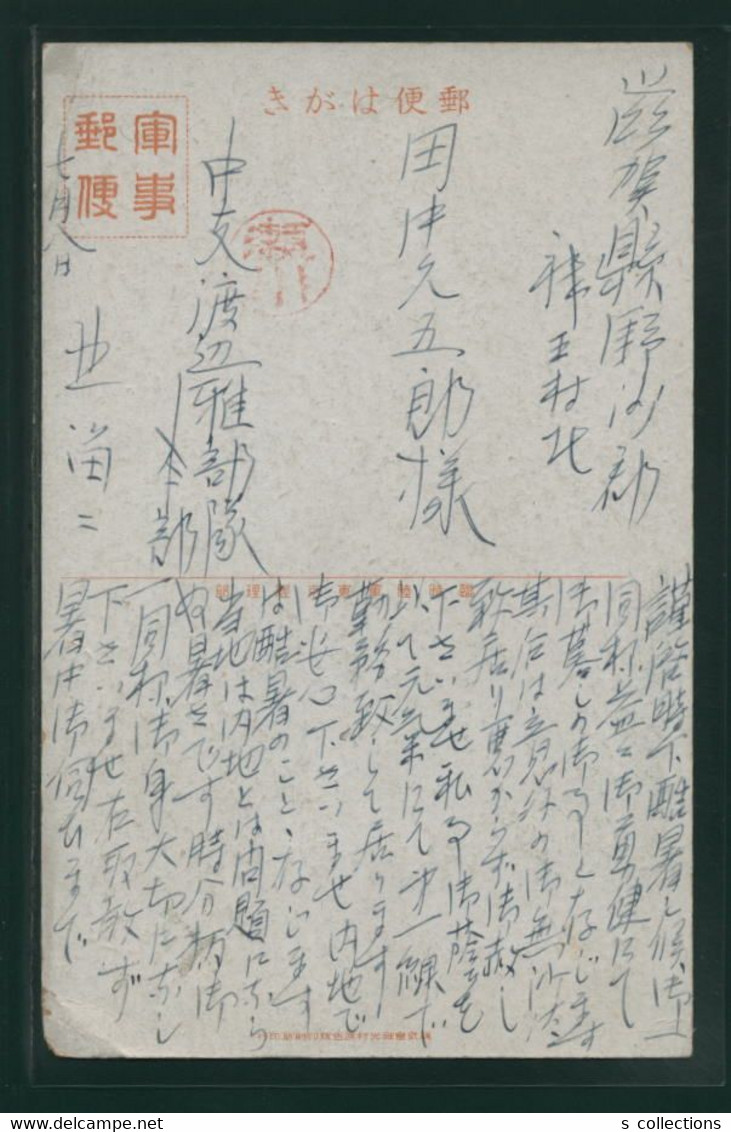 郵便はがき
軍事郵便
滋賀縣野洲郡
祇王村北
田中久五郎様
中支渡辺雅部隊
本部
七月八日
謹啓時下酷暑之候御一
同様益々御勇健にて
御暮しの御事と存じます
其后は意外の御無沙汰
致居り悪からず御赦し
下さいませ私事御蔭を
以て元気にて第一線で
勤務致して居ります
御安心下さいませ内地で
は酷暑のことゝ存じます
当地は内地とは問題になら
ぬ暑さです時分柄御
一同様御身大切になし
下さいませ右取敢ず
暑中御伺ひまで
s collections